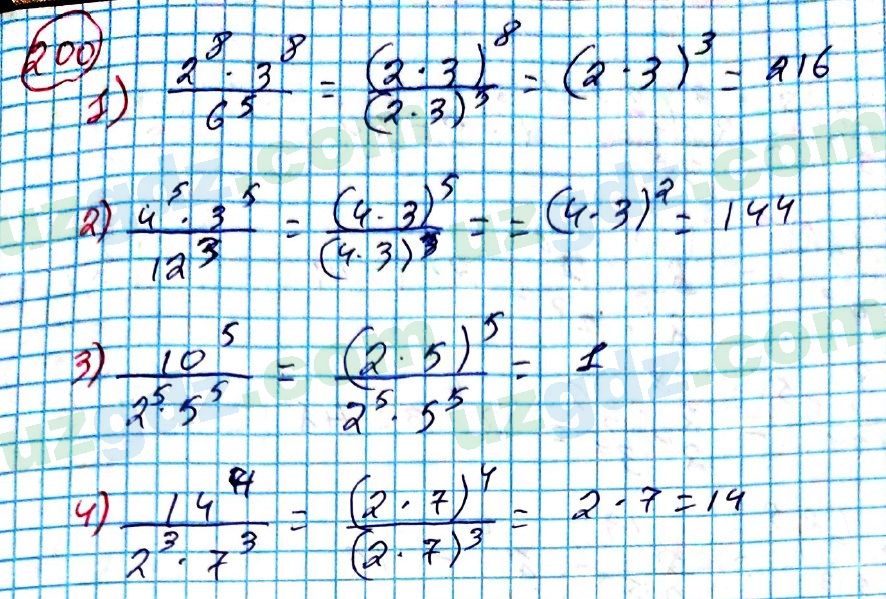 200
1) 2^8 · 3^8 / 6^5 = (2 · 3)^8 / (2 · 3)^5 = (2 · 3)^3 = 216
2) 4^5 · 3^5 / 12^3 = (4 · 3)^5 / (4 · 3)^3 = = (4 · 3)^2 = 144
3) 10^5 / 2^5 · 5^5 = (2 · 5)^5 / 2^5 · 5^5 = 1
4) 14^4 / 2^3 · 7^3 = (2 · 7)^4 / (2 · 7)^3 = 2 · 7 = 14
uzgdz.com
uzgdz.com
uzgdz.com
uzgdz.com